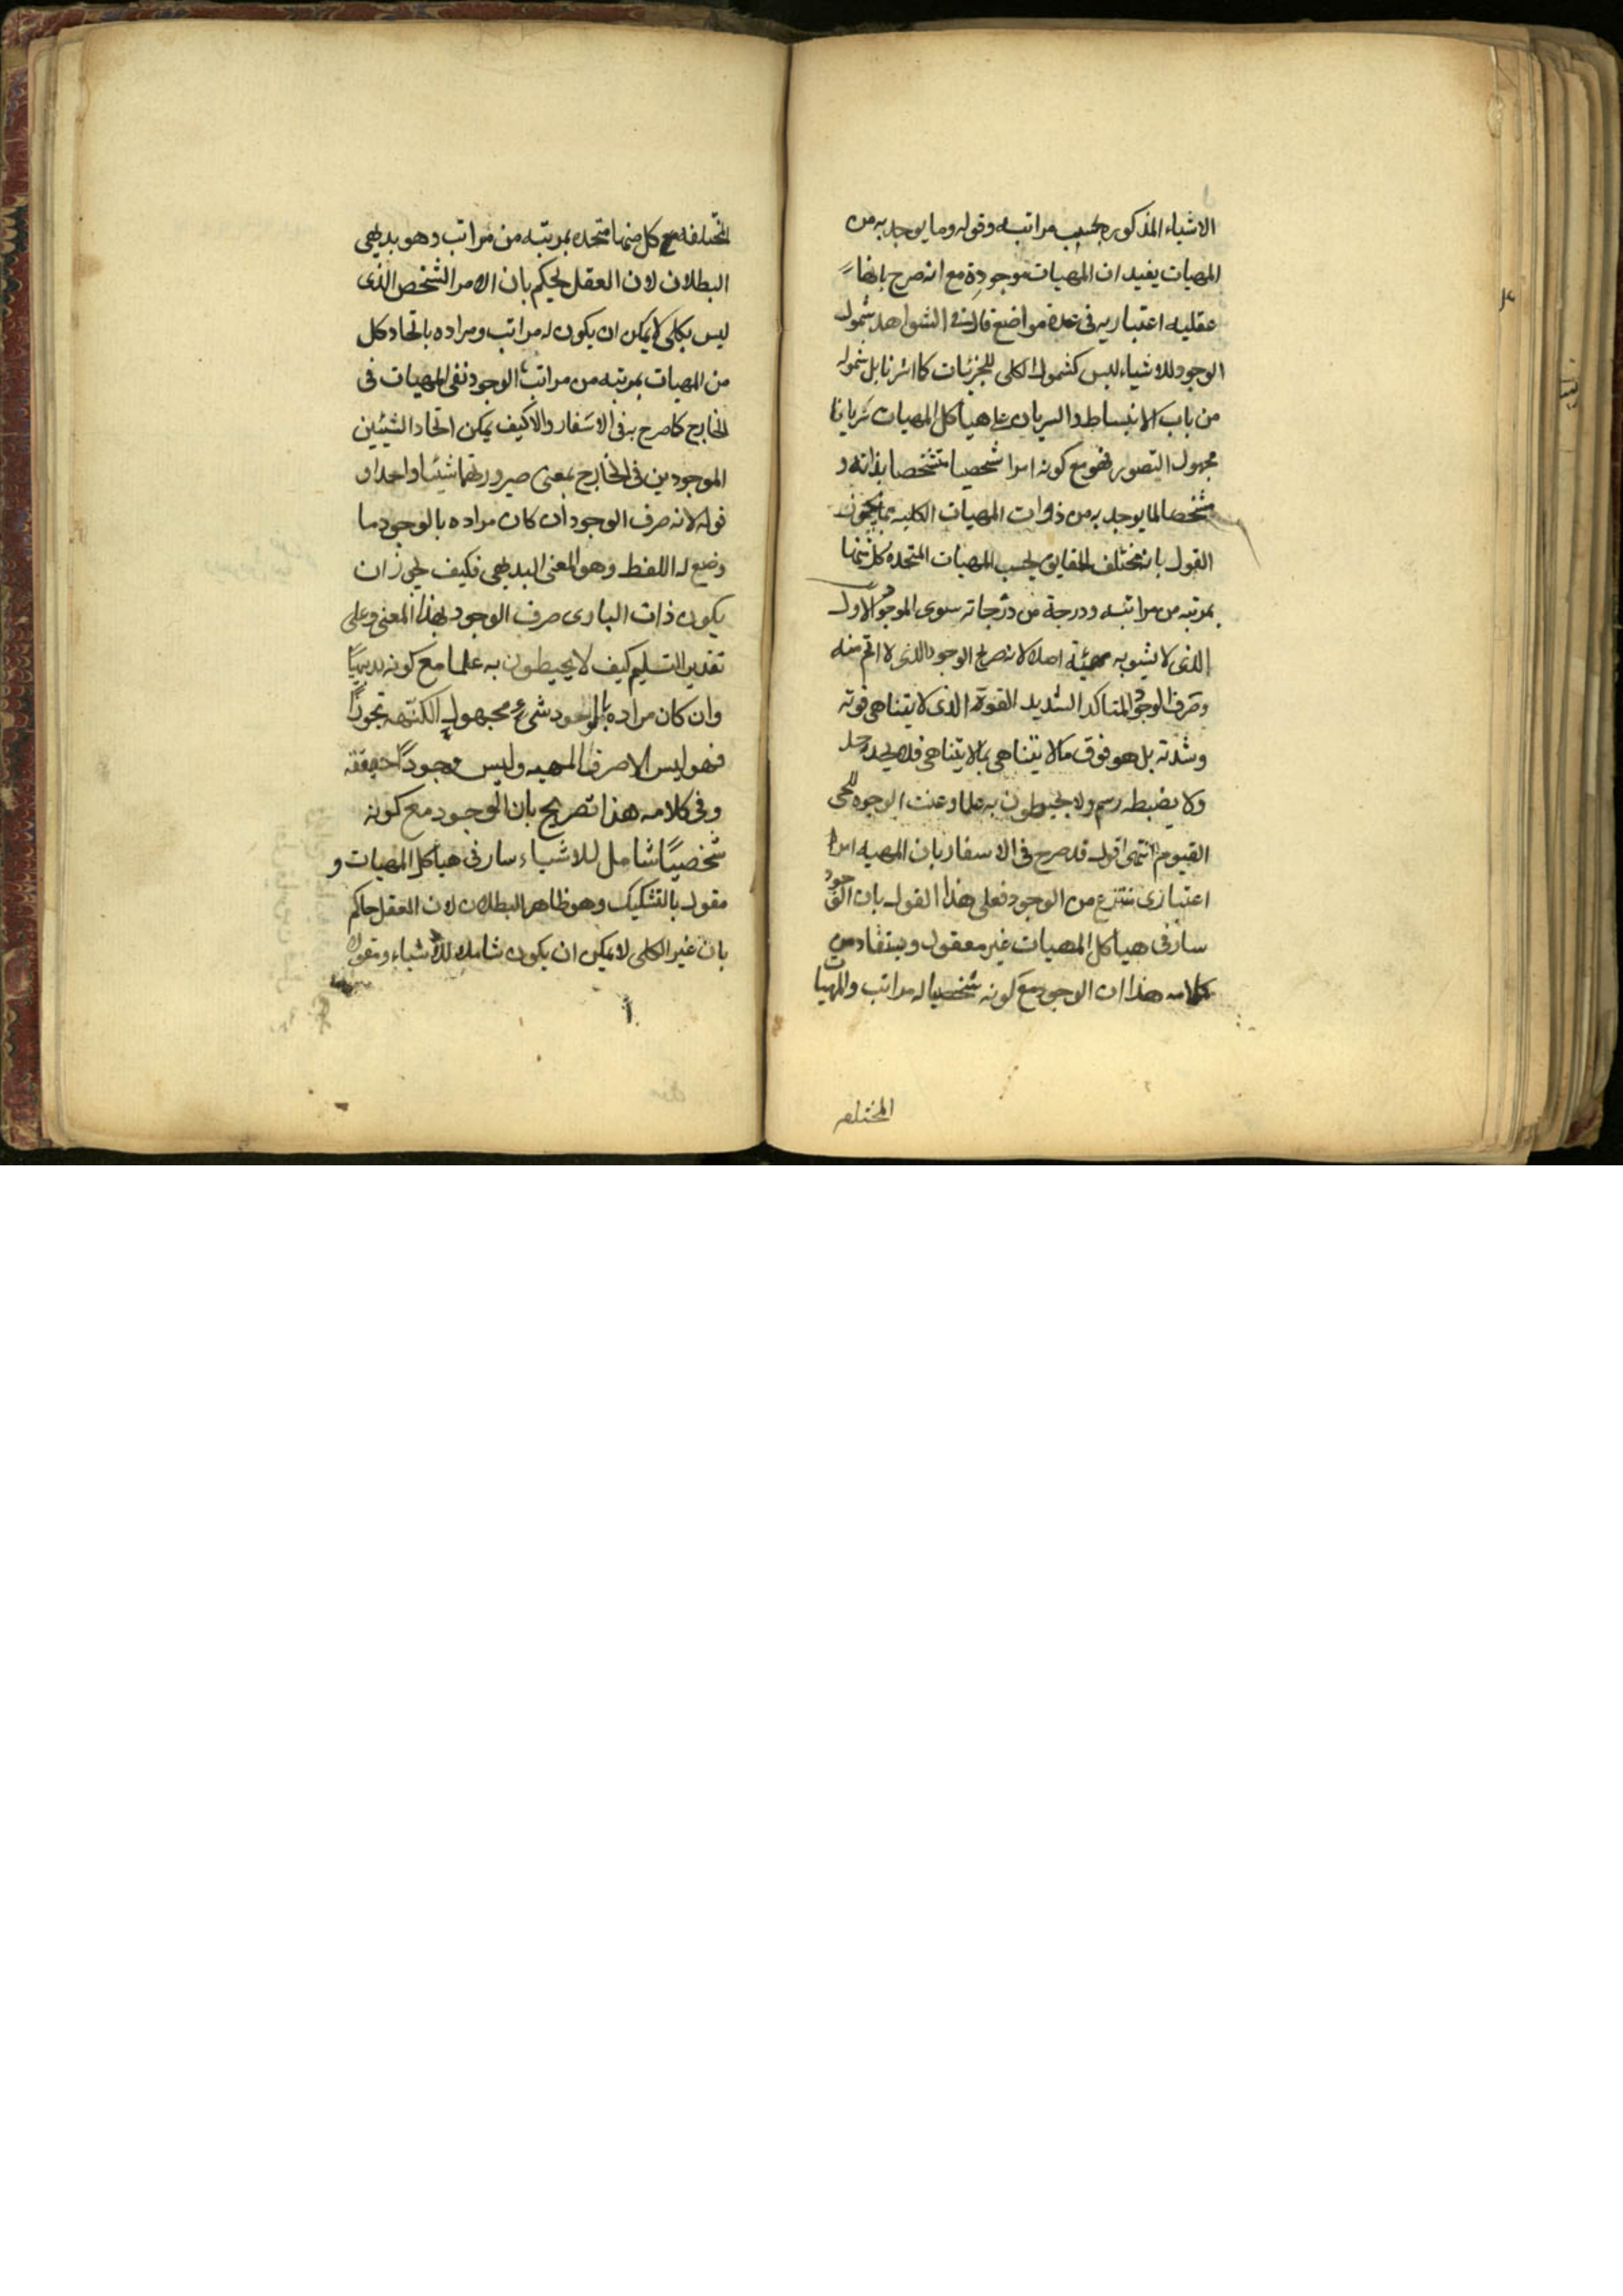 الاشياء المذكوره بحسب مراتبه وقوله وما يوجد به من
المهيات يفيد ان المهيات موجودة مع انه صرح بانها
عقليه اعتباريه فى عدة مواضع قال فى الشواهد شمول
الوجود للاشياء ليس كشمول الكلى للجزئيات كما اشرنا بل شموله
من باب الانبساط والسريان على هياكل المهيات سريانا
مجهول التصور فهو مع كونه امرا شخصيا متشخصا بذاته و
مشخصا لما يوجد به من ذوات المهيات الكليه مما يجوز
القول بانه مختلف الحقايق بحسب المهيات المتحده كل منها
بمرتبه من مراتبه ودرجة من درجاته سوى الموجود الاول
الذى لا يشوبه مهية اصلا لانه صريح الوجود الذى لا اتم منه
وصرف الوجود المتاكد الشديد القوة الذى لا يتناهى قوته
وشدته بل هو فوق ما لا يتناهى بما لا يتناهى فلا يحده حد
ولا يضبطه رسم ولا يحيطون به علما وعنت الوجوه للحى
القيوم انتهى اقول قد صرح فى الاسفار بان المهيه امرا
اعتبارى منتزع من الوجود فعلى هذا القول بان الوجود
سار فى هياكل المهيات غير معقول ويستفاد من
كلامه هذا ان الوجود مع كونه شخصيا له مراتب والمهيات
المختلفه
المختلفه مع كل منها متحده بمرتبه من مراتب وهو بديهى
البطلان لان العقل يحكم بان الامر الشخص الذى
ليس بكلى لا يمكن ان يكون له مراتب ومراده باتحاد كل
من المهيات بمرتبه من مراتب الوجود نفى المهيات فى
الخارج كما صرح به فى الاسفار والا كيف يمكن اتحاد الشيئين
الموجودين فى الخارج بمعنى صيرورتهما شيئا واحدا و
قوله لانه صرف الوجود ان كان مراده بالوجود ما
وضع له اللفظ وهو المعنى البديهى فكيف يجوز ان
يكون ذات البارى صرف الوجود بهذا المعنى وعلى
تقدير التسليم كيف لا يحيطون به علما مع كونه بديهيًا
وان كان مراده بالوجود شىء مجهول الكنه تجوزًا
فهو ليس الا صرف المهيه وليس وجودًا حقيقة
وفى كلامه هذا تصريح بان الوجود مع كونه
شخصيًا شامل للاشياء سار فى هياكل المهيات و
مقول بالتشكيك وهو ظاهر البطلان لان العقل حاكم
بان غير الكلى لا يمكن ان يكون شاملا للاشياء ومقولا